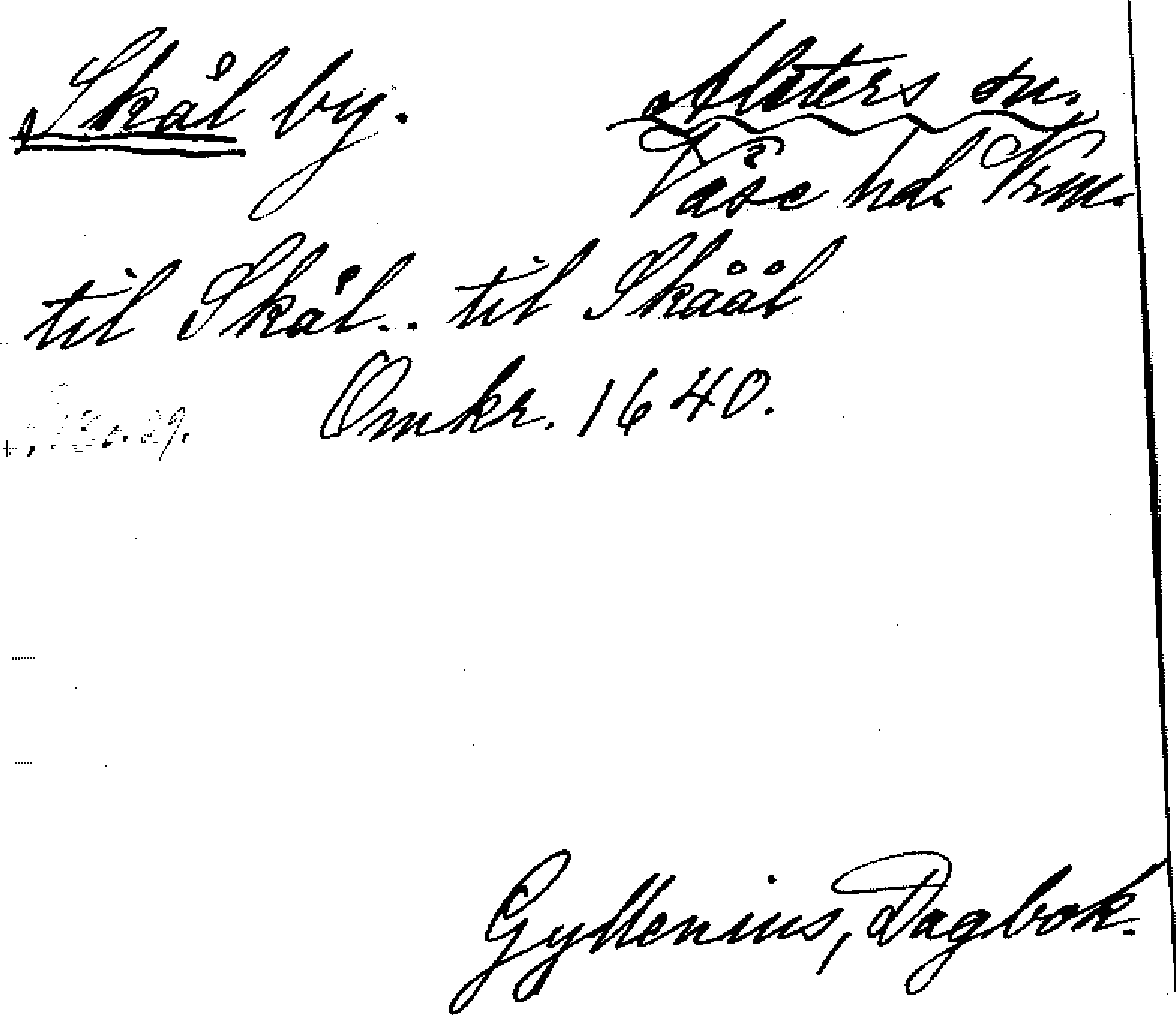 Skål by.
Alsters sn.
Väse hd. Vrm.
til Skål.. til Skåål
Omkr. 1640.
Gyllenius, Dagbok.